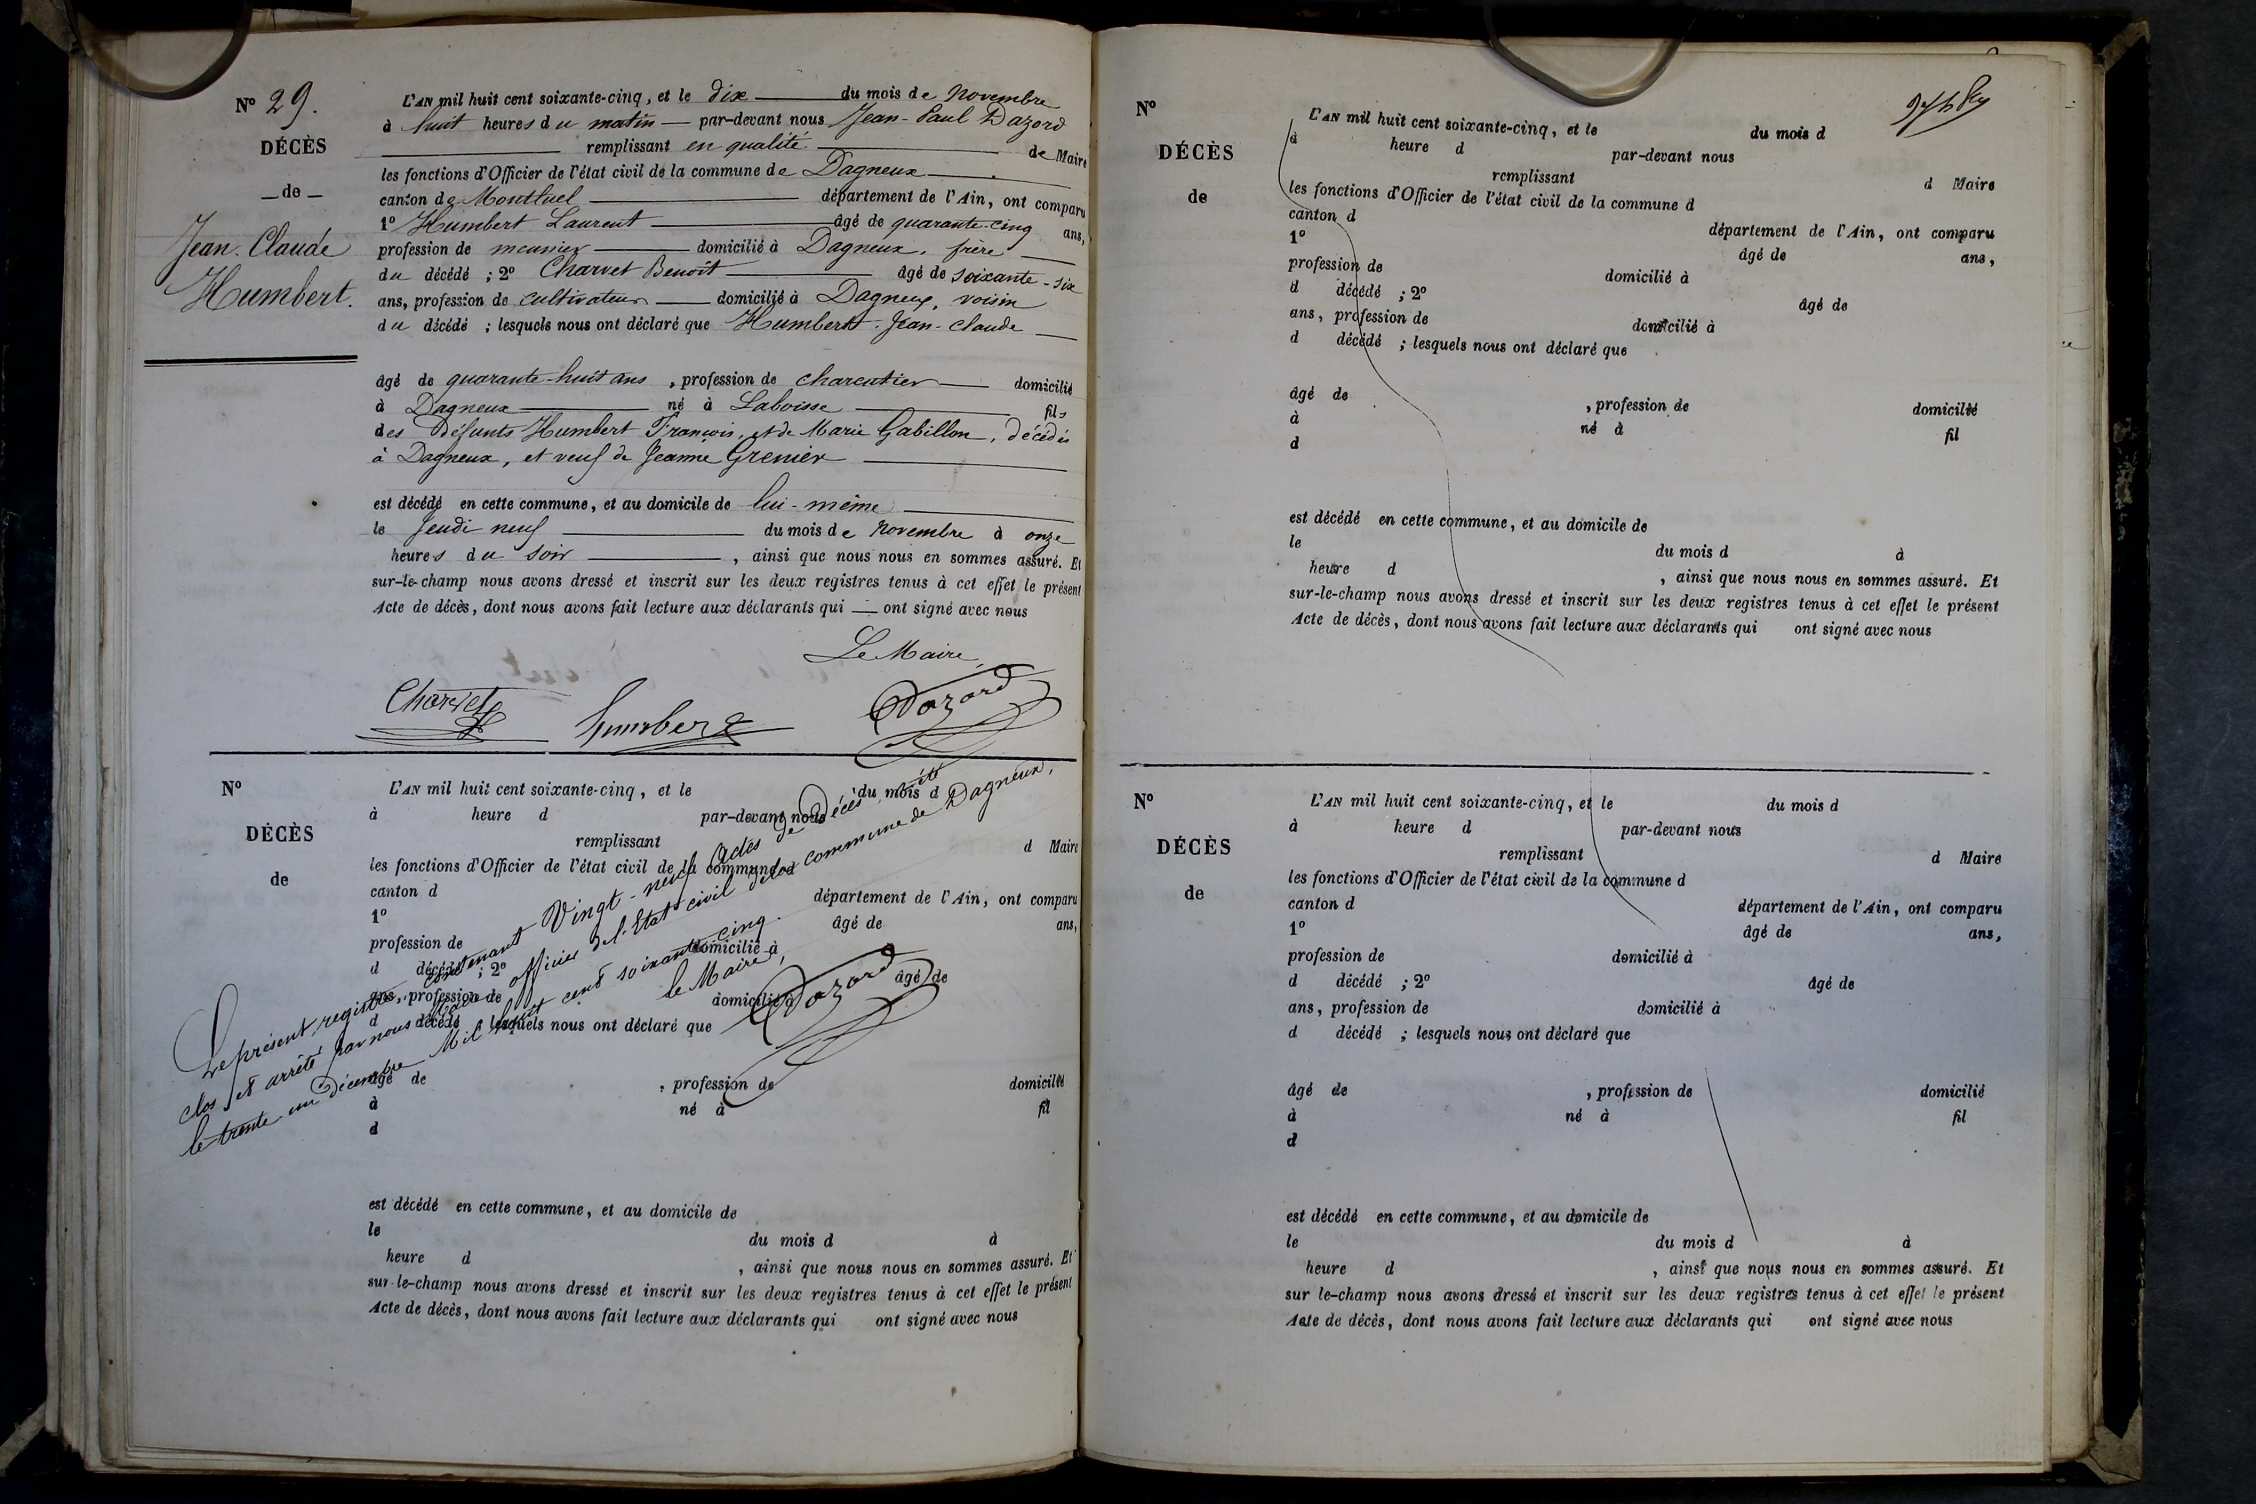 N° 29.
DÉCÈS
de
Jean-Claude
Humbert.
L'AN mil huit cent soixante-cinq, et le dix du mois de Novembre
à huit heures du matin par-devant nous Jean-Paul Dazord
remplissant en qualité de Maire
les fonctions d'Officier de l'état civil de la commune de Dagneux
canton de Montluel département de l'Ain, ont comparu
1° Humbert Laurent âgé de quarante-cinq ans,
profession de meunier domicilié à Dagneux, frère
du décédé ; 2° Charvet Benoît âgé de soixante-six
ans, profession de cultivateur domicilié à Dagneux, voisin
du décédé ; lesquels nous ont déclaré que Humbert Jean-Claude
âgé de quarante-huit ans, profession de charcutier domicilié
à Dagneux né à Laboisse fils
des Défunts Humbert François, et de Marie Gabillon, décédés
à Dagneux, et veuf de Jeanne Grenier
est décédé en cette commune, et au domicile de lui-même
le Jeudi neuf du mois de Novembre à onze
heures du soir, ainsi que nous nous en sommes assuré. Et
sur-le-champ nous avons dressé et inscrit sur les deux registres tenus à cet effet le présent
Acte de décès, dont nous avons fait lecture aux déclarants qui ont signé avec nous
Le Maire,
Charvet Humbert Dazord
N°
DÉCÈS
de
L'AN mil huit cent soixante-cinq, et le du mois d
à heure d par-devant nous
remplissant d Maire
les fonctions d'Officier de l'état civil de la commune d
canton d département de l'Ain, ont comparu
1° âgé de ans,
profession de domicilié à
d décédé ; 2° âgé de
ans, profession de domicilié à
d décédé ; lesquels nous ont déclaré que
âgé de , profession de domicilié
à né à fil
d
est décédé en cette commune, et au domicile de
le du mois d à
heure d , ainsi que nous nous en sommes assuré. Et
sur-le-champ nous avons dressé et inscrit sur les deux registres tenus à cet effet le présent
Acte de décès, dont nous avons fait lecture aux déclarants qui ont signé avec nous
Le présent registre contenant Vingt-neuf actes de Décès été
clos et arrêté par nous Maire officier de l'Etat civil de la commune de Dagneux,
le trente un Décembre Mil huit cent soixante cinq.
Le Maire,
Dazord
N°
DÉCÈS
de
L'AN mil huit cent soixante-cinq, et le du mois d
à heure d par-devant nous
remplissant d Maire
les fonctions d'Officier de l'état civil de la commune d
canton d département de l'Ain, ont comparu
1° âgé de ans,
profession de domicilié à
d décédé ; 2° âgé de
ans, profession de domicilié à
d décédé ; lesquels nous ont déclaré que
âgé de , profession de domicilié
à né à fil
d
est décédé en cette commune, et au domicile de
le du mois d à
heure d , ainsi que nous nous en sommes assuré. Et
sur-le-champ nous avons dressé et inscrit sur les deux registres tenus à cet effet le présent
Acte de décès, dont nous avons fait lecture aux déclarants qui ont signé avec nous
N°
DÉCÈS
de
L'AN mil huit cent soixante-cinq, et le du mois d
à heure d par-devant nous
remplissant d Maire
les fonctions d'Officier de l'état civil de la commune d
canton d département de l'Ain, ont comparu
1° âgé de ans,
profession de domicilié à
d décédé ; 2° âgé de
ans, profession de domicilié à
d décédé ; lesquels nous ont déclaré que
âgé de , profession de domicilié
à né à fil
d
est décédé en cette commune, et au domicile de
le du mois d à
heure d , ainsi que nous nous en sommes assuré. Et
sur le-champ nous avons dressé et inscrit sur les deux registres tenus à cet effet le présent
Acte de décès, dont nous avons fait lecture aux déclarants qui ont signé avec nous